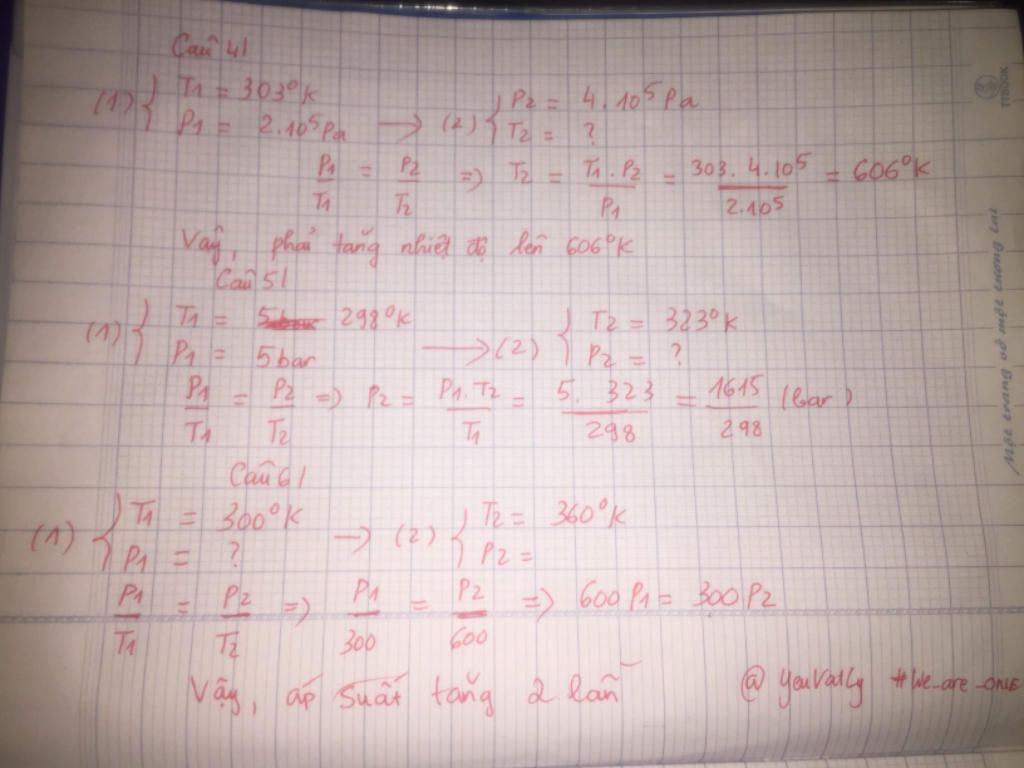 Câu 4/
(1) { T1 = 303°K
P1 = 2.10^5 Pa → (2) { P2 = 4.10^5 Pa
T2 = ?
P1/T1 = P2/T2 => T2 = T1.P2/P1 = 303.4.10^5/2.10^5 = 606°K
Vậy, phải tăng nhiệt độ lên 606°K
Câu 5/
(1) { T1 = 298°K
P1 = 5bar → (2) { T2 = 323°K
P2 = ?
P1/T1 = P2/T2 => P2 = P1.T2/T1 = 5.323/298 = 1615/298 (bar)
Câu 6/
(1) { T1 = 300°K → (2) { T2 = 360°K
P1 = ? P2 =
P1/T1 = P2/T2 => P1/300 = P2/600 => 600P1 = 300P2
Vậy, áp suất tăng 2 lần
@ YouVatLy #We_are_ONE